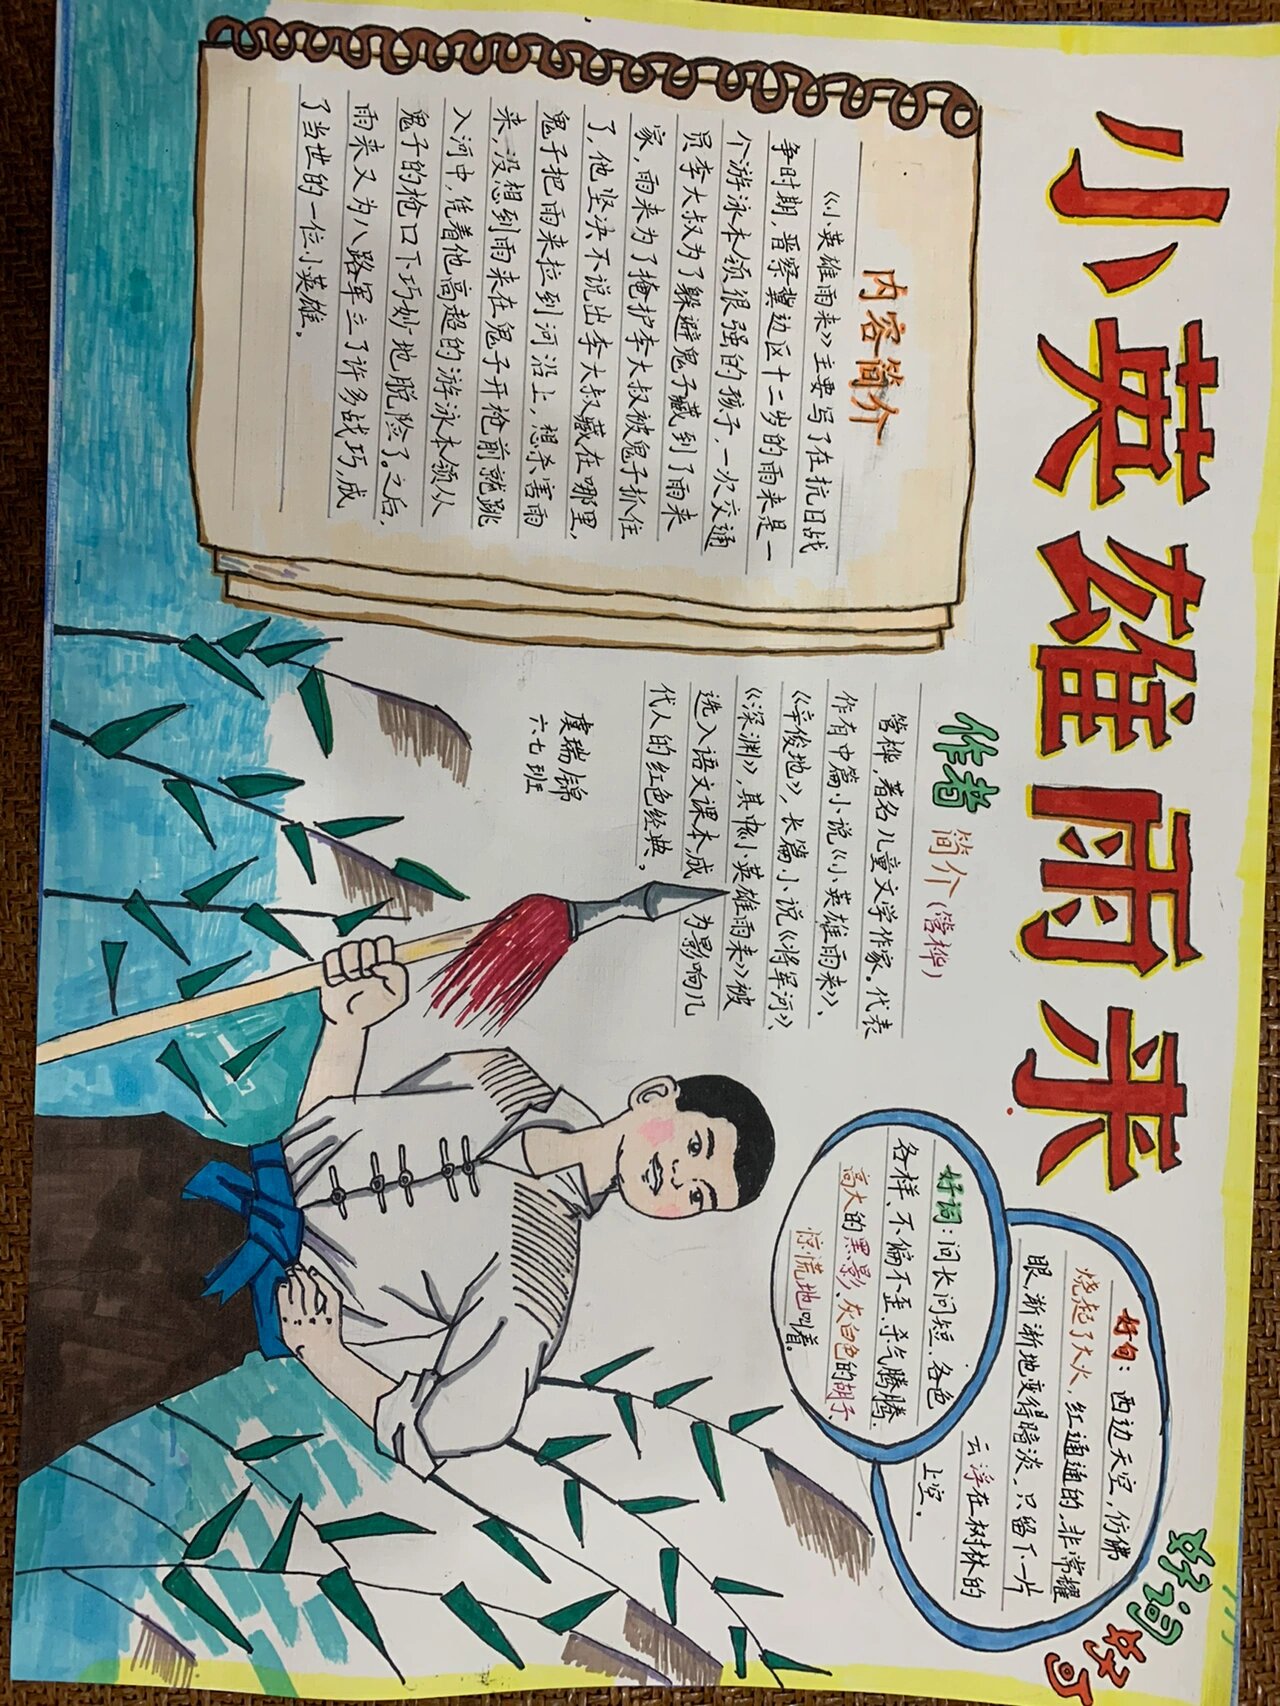 小英雄雨来
内容简介
《小英雄雨来》主要写了在抗日战
争时期,晋察冀边区十二岁的雨来是一
个游泳本领很强的孩子,一次交通
员李大叔为了躲避鬼子藏到了雨来
家,雨来为了掩护李大叔被鬼子抓住
了,他坚决不说出李大叔藏在哪里,
鬼子把雨来拉到河沿上,想杀害雨
来,没想到雨来在鬼子开枪前就跳
入河中,凭着他高超的游泳本领从
鬼子的枪口下巧妙地脱险了。之后,
雨来又为八路军立了许多战巧,成
了当世的一位小英雄。
作者简介(管桦)
管桦,著名儿童文学作家。代表
作有中篇小说《小英雄雨来》、
《辛俊地》,长篇小说《将军河》、
《深渊》,其中《小英雄雨来》被
选入语文课本,成为影响几
代人的红色经典。
虞瑞锦
六七班
好词好句
好句:西边天空,仿佛
烧起了大火,红通通的,非常耀
眼,渐渐地变得暗淡,只留下一片
云浮在树林的
上空。
好词:问长问短、各色
各样、不偏不歪、杀气腾腾、
高大的黑影、灰白色的胡子、
惊慌地叫着。